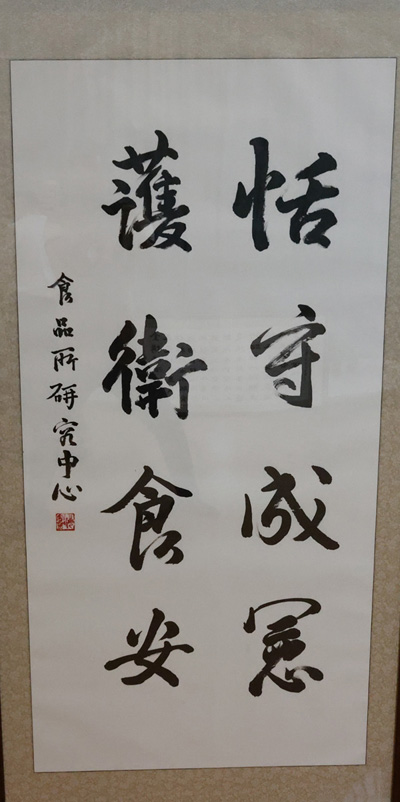 恬守成憲
護衛食安
食品所研究中心